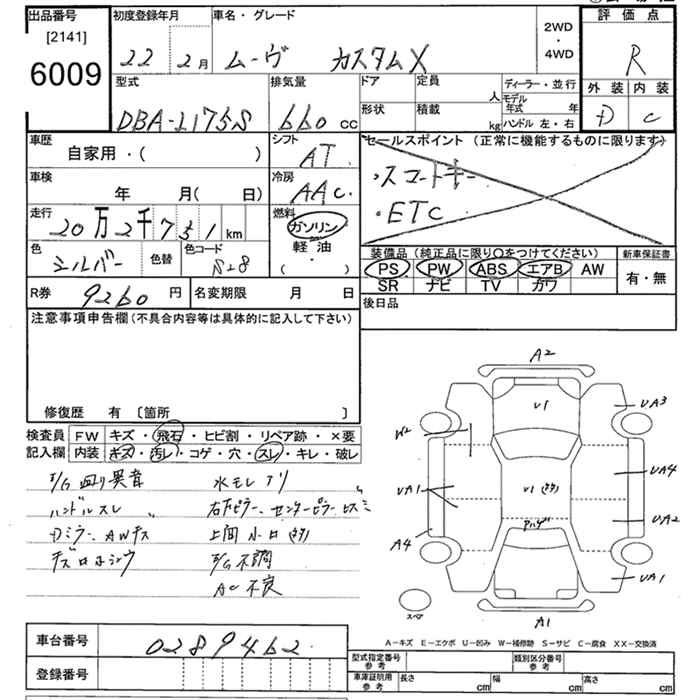 出品番号 初度登録年月 車名・グレード 評価点
[2141]
6009
22 2月 ムーヴ カスタムX
2WD
・
4WD
R
外装 内装
D C
型式 排気量 ドア 定員 人 ディーラー・並行
DBA-L175S 660cc
形状 積載 kg モデル年式 年
ハンドル 左・右
車歴 シフト セールスポイント (正常に機能するものに限ります)
自家用・( ) AT
・スマートキー
車検 冷房
年 月( 日) AAC
・ETC
走行 燃料
20万2千731km ガソリン
軽油
・
( )
色 色替 色コード
シルバー S28
装備品 (純正品に限り〇をつけてください) 新車保証書
PS PW ABS エアB AW 有・無
SR ナビ TV カワ
R券 9260円 名変期限 月 日
後日品
注意事項申告欄(不具合内容等は具体的に記入して下さい)
修復歴 有 [箇所 ]
検査員 FW キズ・飛石・ヒビ割・リペア跡・×要
記入欄 内装 キズ・汚レ・コゲ・穴・スレ・キレ・破レ
E/G廻り異音 水モレアリ
ハンドルスレ
Dミラー、AWキズ
E/G不調
AC不良
A2
U1
UA3
W2
UA1
UA4
UA2
A4
UA1
A1
スペア
A-キズ E-エクボ U-凹み W-補修跡 S-サビ C-腐食 XX-交換済
車台番号 0289462
登録番号
型式指定番号 参考 類別区分番号 参考
車庫証明用 参考 長さ cm 幅 cm 高さ cm